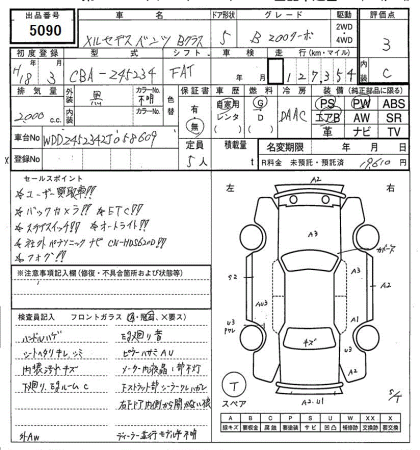 出品番号
5090
車名
メルセデスベンツ Bクラス
ドア形状
5
グレード
B 200ターボ
駆動
2WD
4WD
評価点
3
初度登録
H18年 3月
型式
CBA-245234
シフト
FAT
車検
年 月
走行(km・マイル)
127,354
内装
C
排気量
2000 c.c.
外装
黒
カラーNo.
不明
内装
黒
カラーNo.
色替
保証書
有
無
車歴
自家用
レンタ
燃料
G
D
冷房
DAAC
装備(純正部品に限る)
PS PW ABS
エアB AW SR
革 ナビ TV
車台No.
WDD2452342J058609
定員
5人
積載量
t
名変期限 年 月 日
R料金 未預託・預託済
18610円
セールスポイント
☆ユーザー買取車!!
☆バックカメラ!! ☆ETC!!
☆ステアスイッチ!! ☆オートライト!!
☆社外パナソニックナビ CN-HDS620D!!
☆フォグ!!
※注意事項記入欄(修復・不具合箇所および状態等)
検査員記入 フロントガラス(A・飛石、×要ス)
ハンドルハゲ
シートヘタリ チレ シミ
内張キズ
下廻り、Egルーム C
外AW
Eg廻り 音
ピラーハサミ AU
メーター内液晶1部不灯
ディーラー並行 モデル年不明
左
右
A2
A3
A3
S2
AU3
U3
A2
A1
U3
キズ
A2.U1
T
スペア
5/T
A B C P S U W X XX
線キズ 要板金 腐蝕 要塗装 サビ 凹凸 補修跡 交換跡 要交換